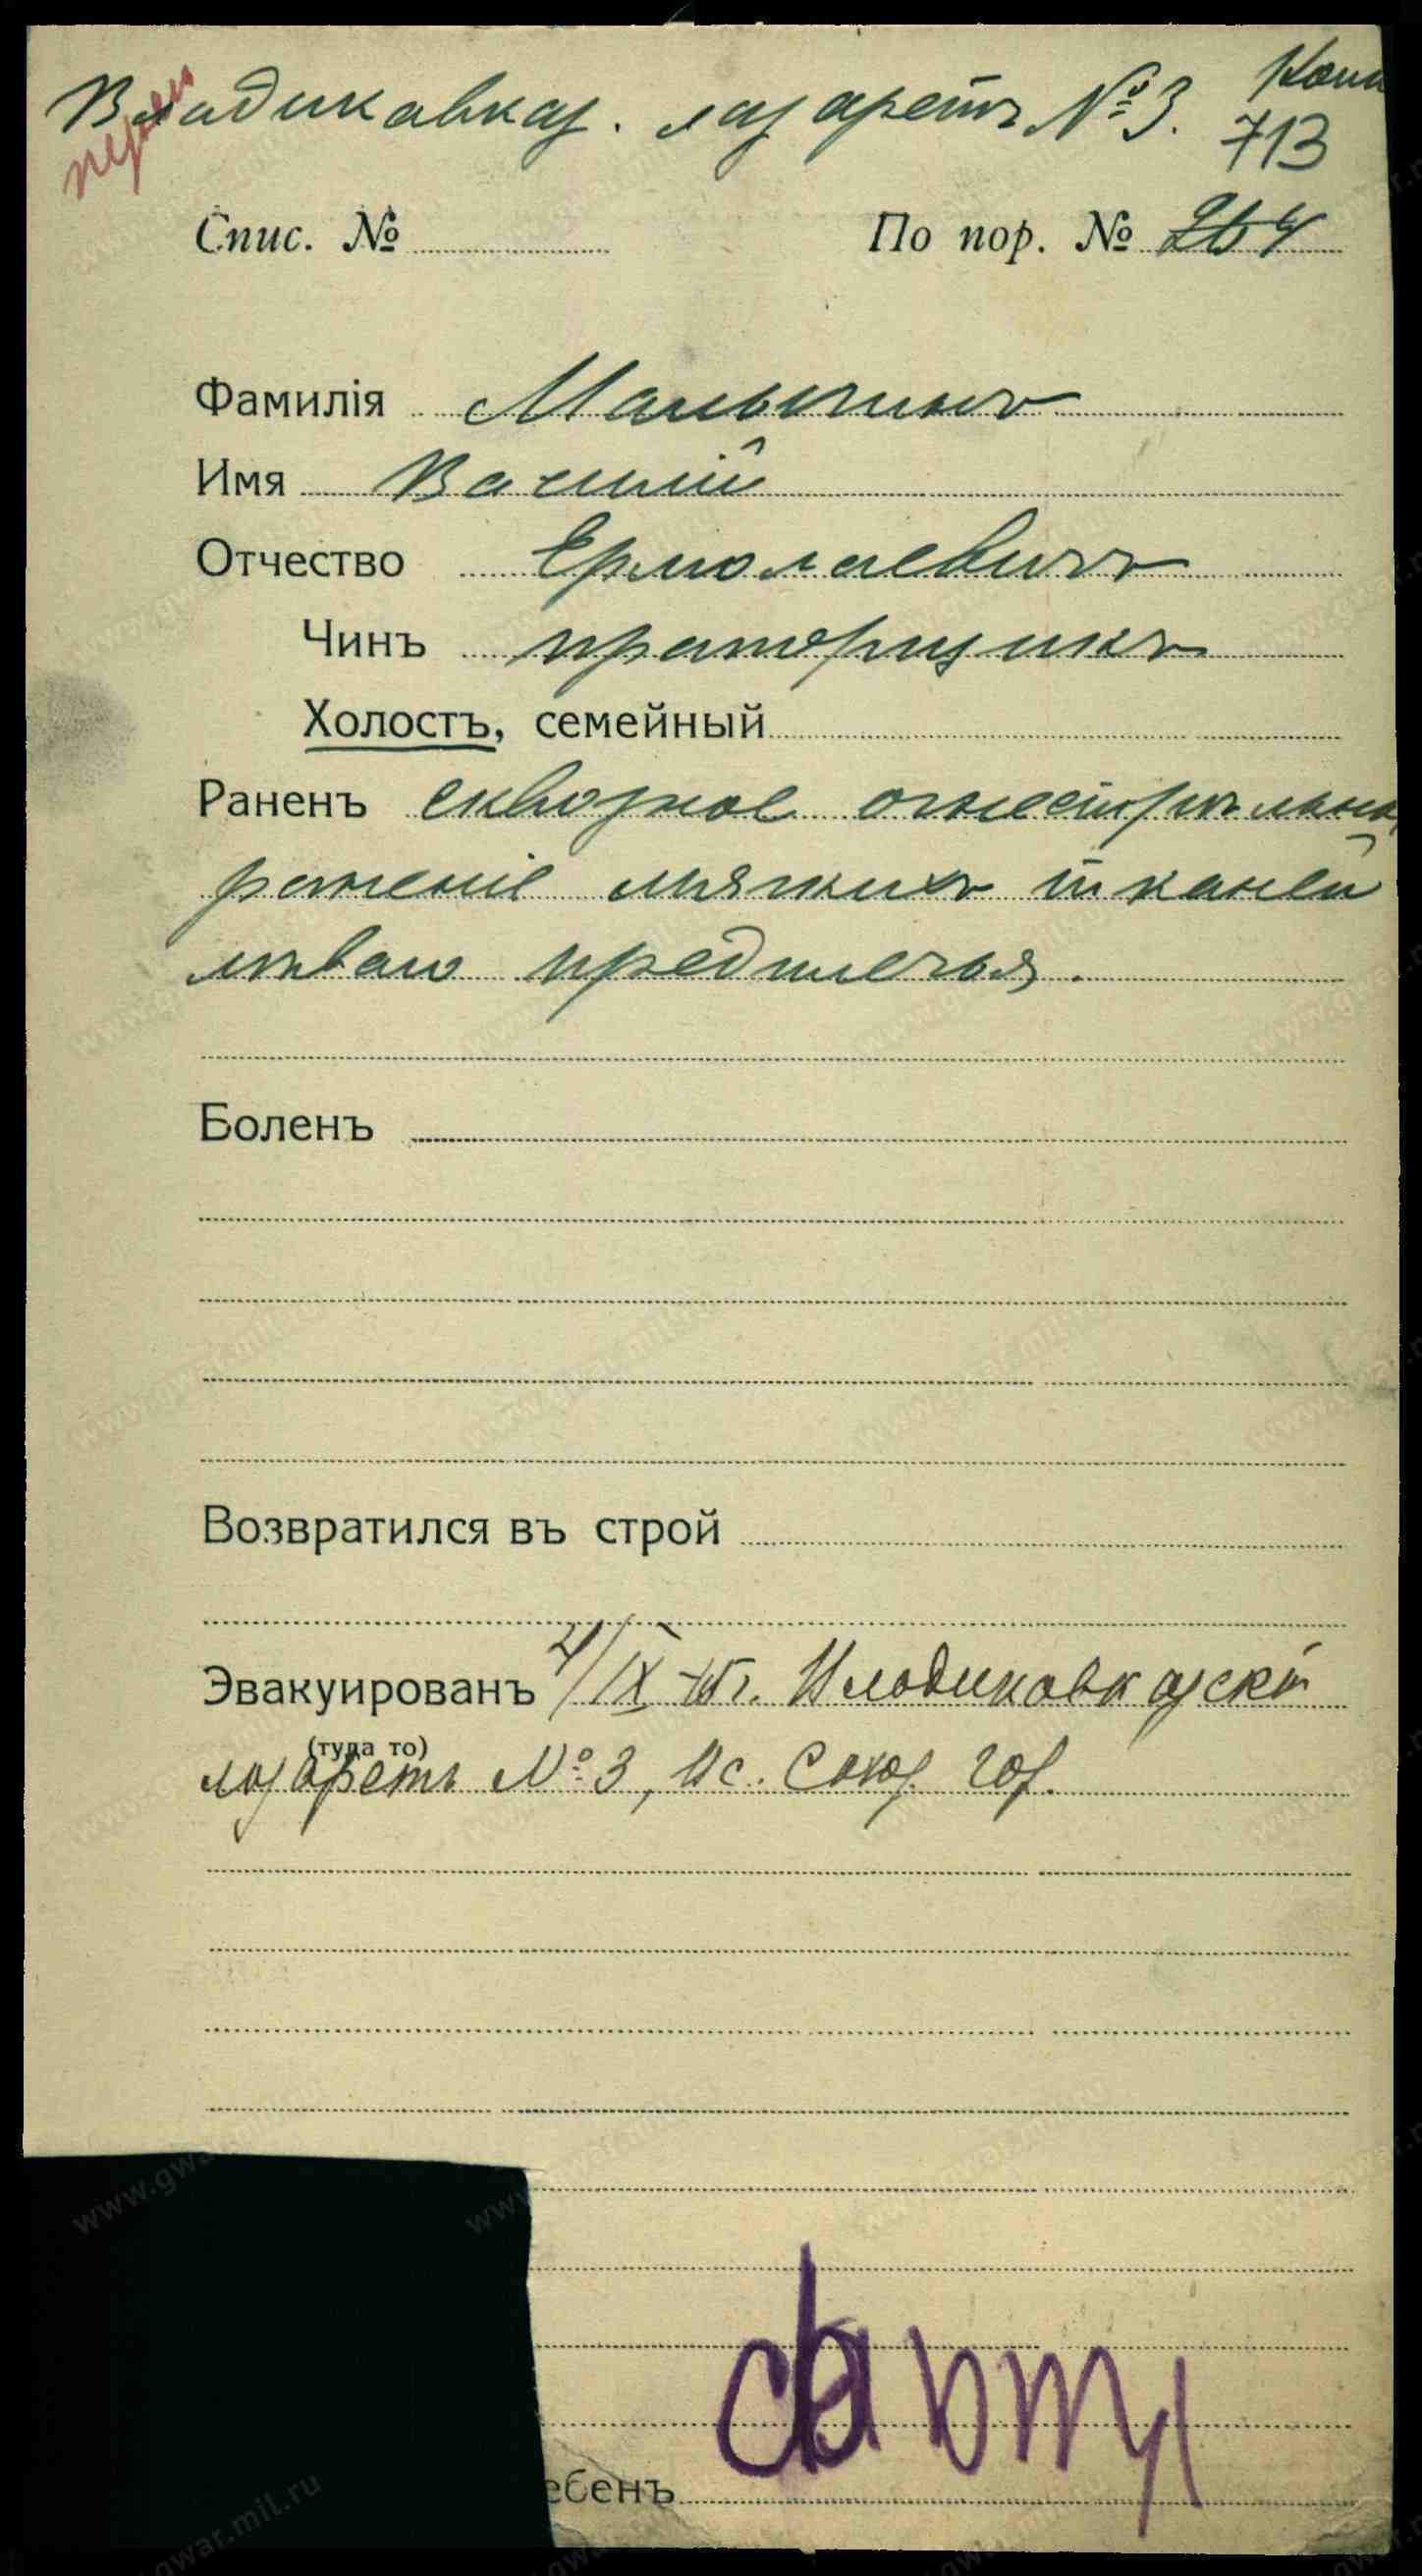 Владикавказ. лазаретъ № 3.
713
Спис. №
По пор. № 264
Фамилія Малыгинъ
Имя Василій
Отчество Ермолаевичъ
Чинъ прапорщикъ
Холостъ, семейный
Раненъ сквозное огнестрѣльн
раненіе мягкихъ тканей
лѣваго предплечья.
Боленъ
Возвратился въ строй
Эвакуированъ /IX 15 г. Владикавказскій
(туда то)
лазаретъ № 3,
ебенъ